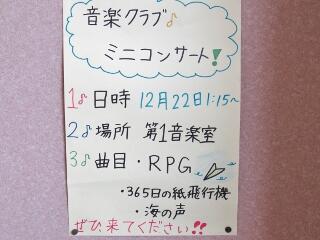 音楽クラブ♪
ミニコンサート!
1♪日時 12月22日1:15~
2♪場所 第1音楽室
3♪曲目・RPG
・365日の紙飛行機
・海の声
ぜひ来てください!!